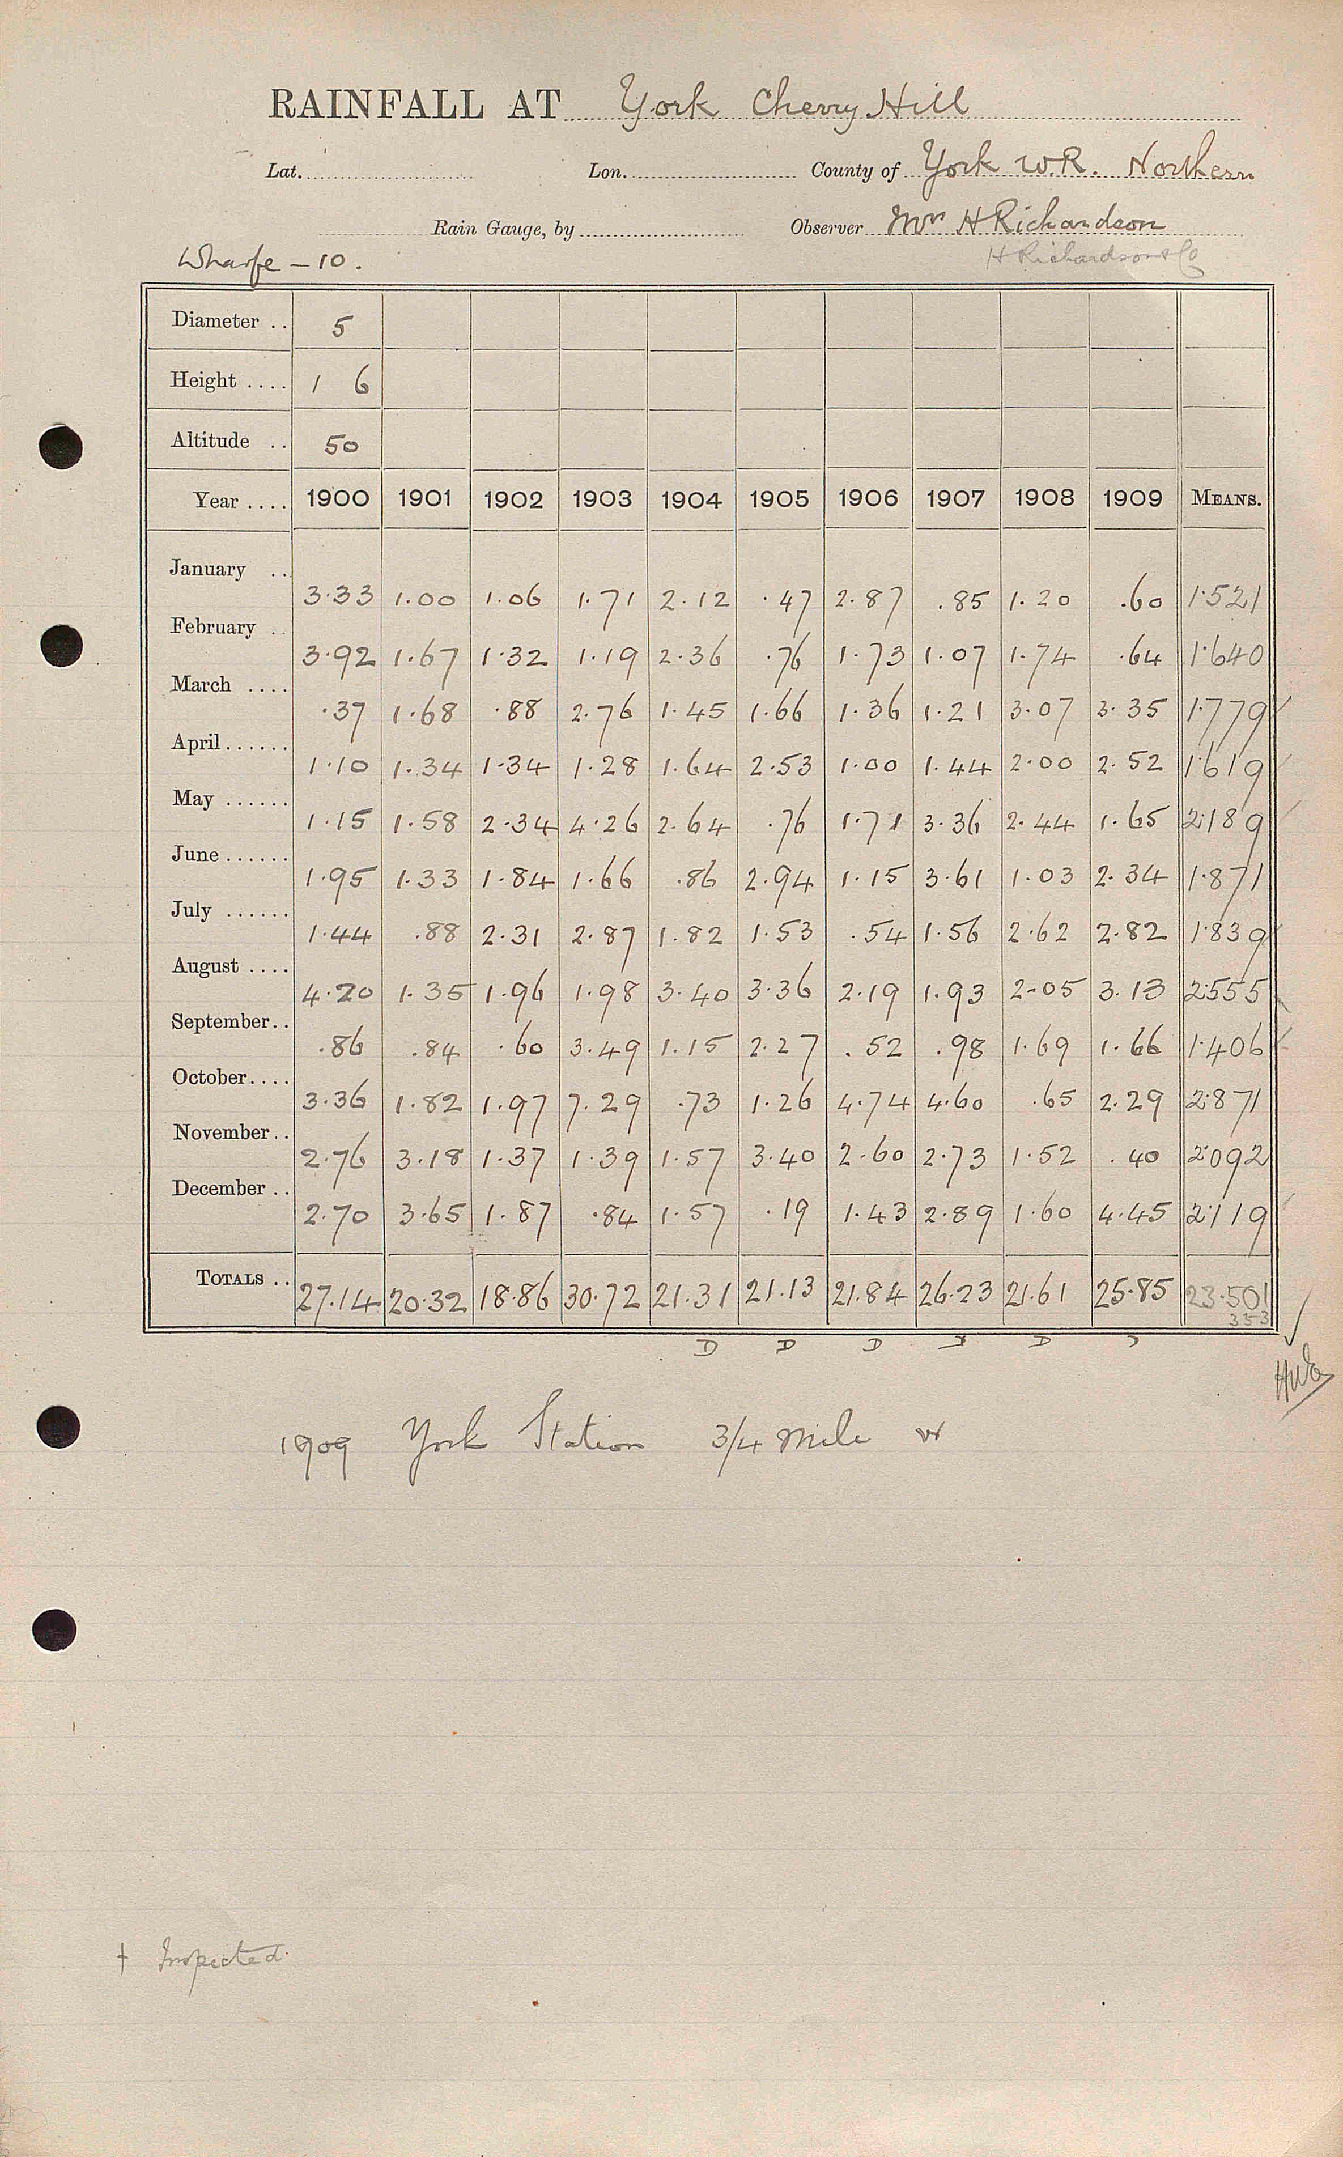 RAINFALL AT York Cherry Hill
Lat. Lon. County of York W.R. Northern
Rain Gauge, by Observer Mr H Richardson
Wharfe - 10. H Richardson & Co
Diameter .. 5
Height .... 1 6
Altitude .. 50
Year .... 1900 1901 1902 1903 1904 1905 1906 1907 1908 1909 MEANS.
January .. 3.33 1.00 1.06 1.71 2.12 .47 2.87 .85 1.20 .60 1.521
February .. 3.92 1.67 1.32 1.19 2.36 .76 1.73 1.07 1.74 .64 1.640
March .... .37 1.68 .88 2.76 1.45 1.66 1.36 1.21 3.07 3.35 1.779
April ...... 1.10 1.34 1.34 1.28 1.64 2.53 1.00 1.44 2.00 2.52 1.619
May ...... 1.15 1.58 2.34 4.26 2.64 .76 1.71 3.36 2.44 1.65 2.189
June ...... 1.95 1.33 1.84 1.66 .86 2.94 1.15 3.61 1.03 2.34 1.871
July ...... 1.44 .88 2.31 2.87 1.82 1.53 .54 1.56 2.62 2.82 1.839
August .... 4.20 1.35 1.96 1.98 3.40 3.36 2.19 1.93 2.05 3.13 2.555
September .. .86 .84 .60 3.49 1.15 2.27 .52 .98 1.69 1.66 1.406
October .... 3.36 1.82 1.97 7.29 .73 1.26 4.74 4.60 .65 2.29 2.871
November .. 2.76 3.18 1.37 1.39 1.57 3.40 2.60 2.73 1.52 .40 2.092
December .. 2.70 3.65 1.87 .84 1.57 .19 1.43 2.89 1.60 4.45 2.119
TOTALS .. 27.14 20.32 18.86 30.72 21.31 21.13 21.84 26.23 21.61 25.85 23.501
353
D D D D D D
1909 York Station 3/4 Mile W
† Inspected.